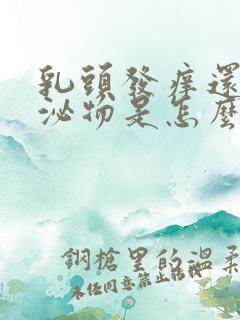 乳頭發痒還
泌物是怎麼
鋼槍里的溫柔
未任同意禁止轉載